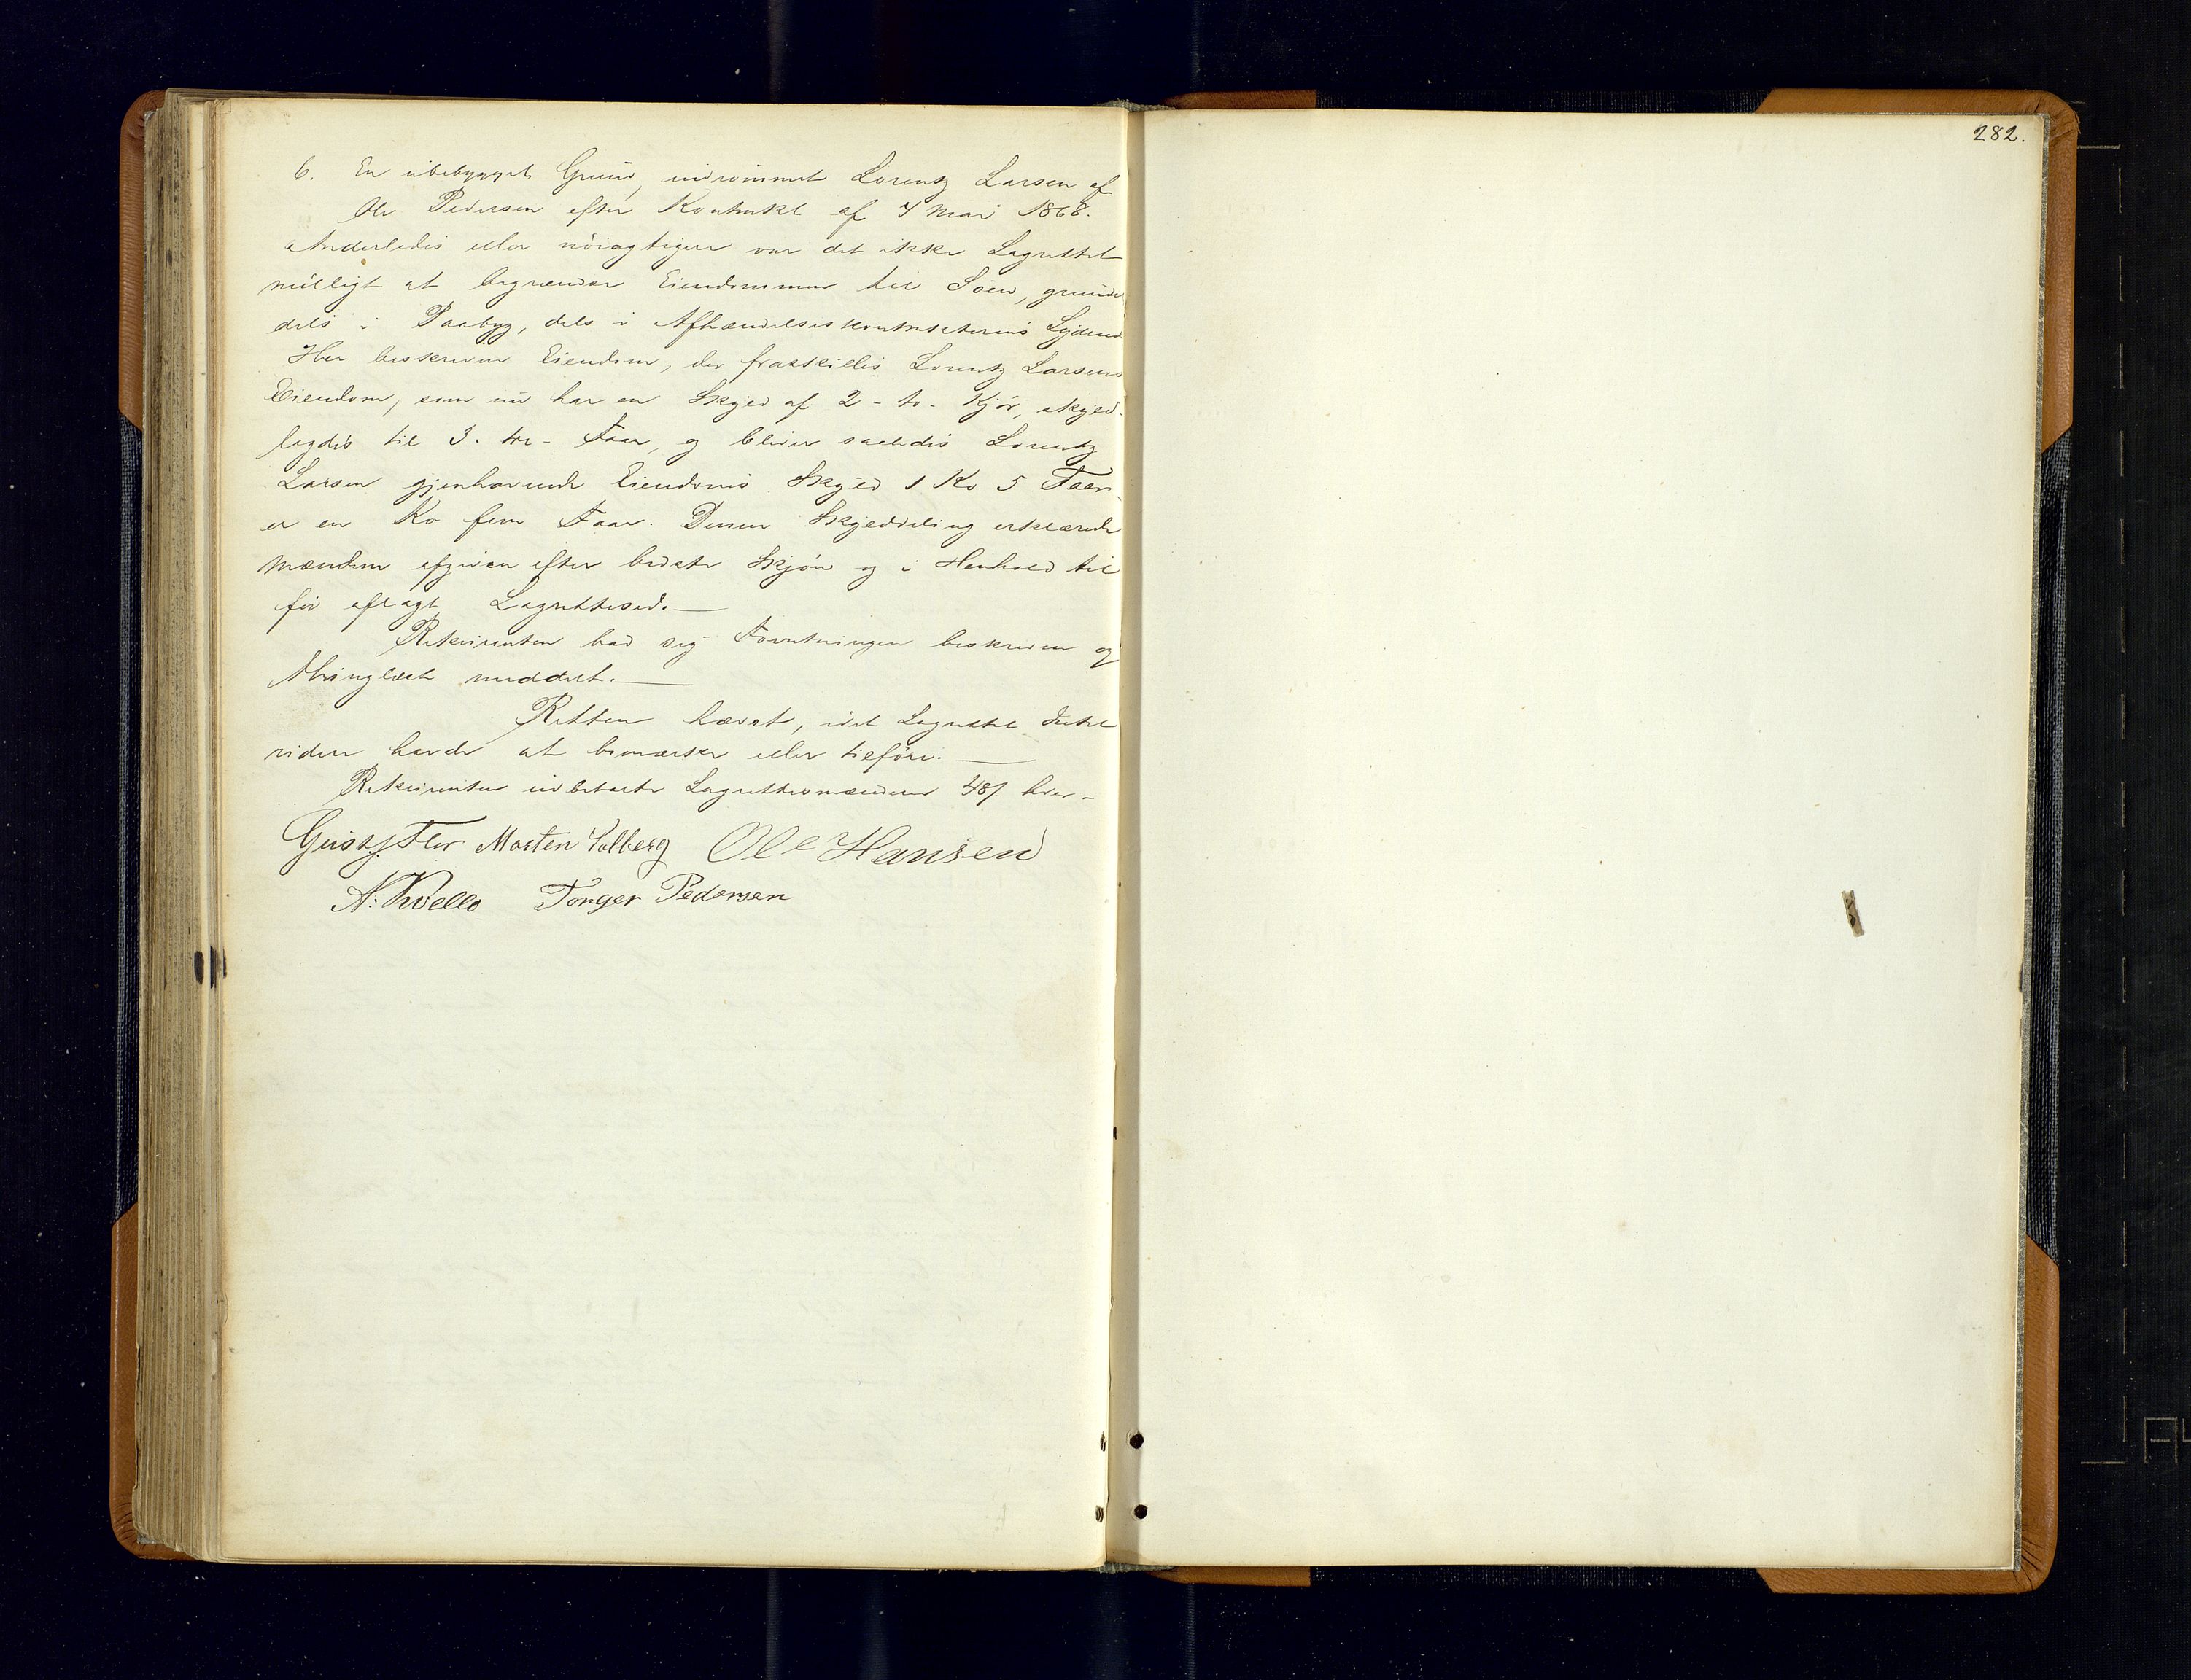 282.
6. En ubebygget Grund, indrømmet Lorentz Larsen af
Ole Pedersen efter Kontrakt af 7 Mai 1868.
Anderledes eller nöiagtigere var det ikke Lagrettet
muligt at begrændse Eiendommen til Söen, grundet
dels i Paabyg, dels i Afhændelseskontrakternes Lydende
Her beskreven Eiendom, der fraskilles Lorentz Larsens
Eiendom, som nu har en Skyld af 2 - to - Kjör, skyld-
lagdes til 3 - tre - Faar, og bliver saaledes Lorentz
Larsen gjenhavende Eiendoms Skyld 1 Ko 5 Faar
er en Ko fem Faar. Denne Skylddeling erklærede
Mændene afgiven efter bedste Skjön og i Henhold til
för aflagt Lagrettesed. —
Rekvirenten bad sig Forretningen beskreven og
thinglæst meddelt. —
Retten hævet, idet Lagrettet Intet
videre havde at bemærke eller tilföre. —
Rekvirenten udbetalte Lagrettesmændene 48 hver -
Gust. Flor Morten Valberg Ole Hansen
N. Kvello Torger Pedersen